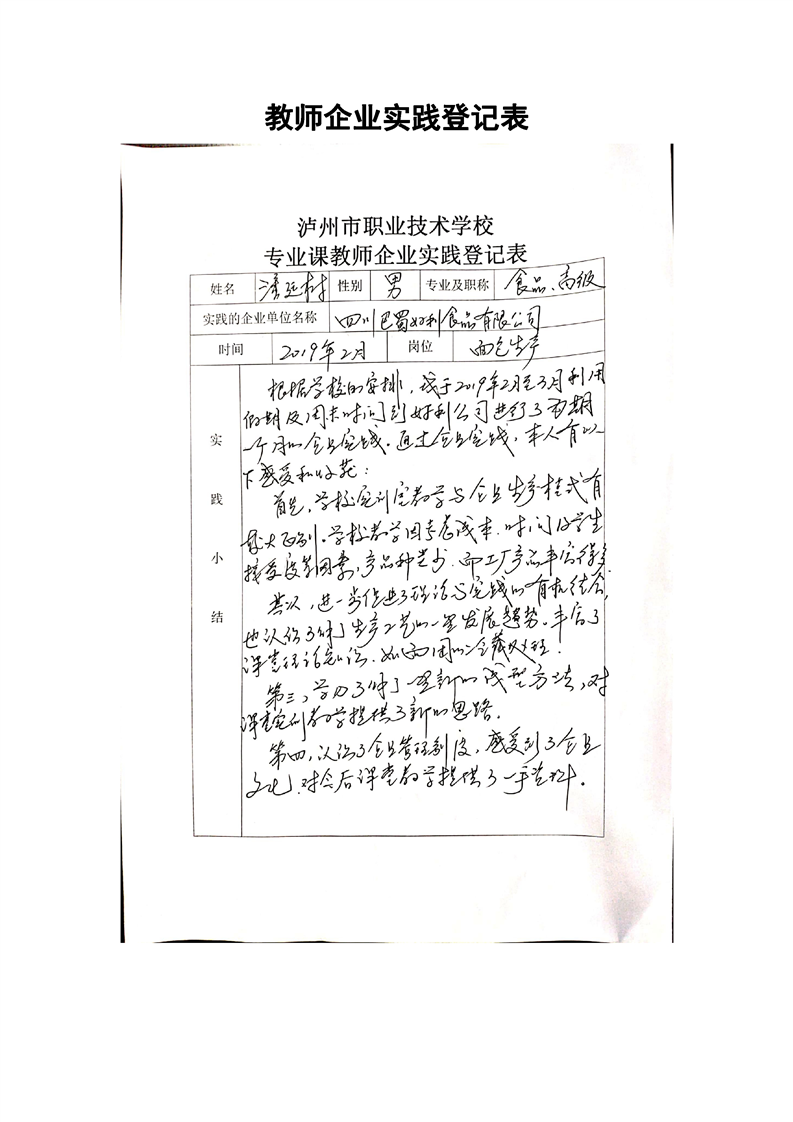 教师企业实践登记表
泸州市职业技术学校
专业课教师企业实践登记表
姓名 性别 男 专业及职称 食品、高级
实践的企业单位名称 四川巴蜀好利食品有限公司
时间 2019年2月 岗位 面包生产
实践小结
根据学校的安排，我于2019年2月至3月利用
假期及周末时间到好利公司进行了为期
一个月的企业实践。通过企业实践，本人有以
下感受和收获：
首先，学校实训室教学与企业生产模式有
很大区别。学校教学因考虑成本、时间及学生
接受度等因素，产品种类少，而工厂产品丰富得多
其次，进一步促进了理论与实践的有机结合，
也认识了解了生产工艺的一些发展趋势。丰富了
课堂理论知识，如面团的
第三，学习了解了一些新的成型方法，对
课堂实训教学提供了新的思路。
第四，认识了企业管理制度，感受到了企业
文化，对今后课堂教学提供了一手资料。